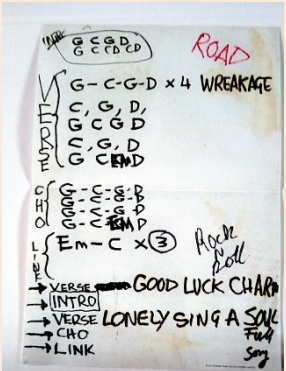 INTRO G C G D ROAD
G C CD CD
VERSE G - C - G - D x 4 WREAKAGE
C, G, D,
G C G D
C, G, D
G C D
CHO G - C - G - D
G - C - G - D
G - C - G - D
G - C - D
LINK Em - C x 3 Rock & Roll
→ VERSE GOOD LUCK CHARM
→ INTRO
→ VERSE LONELY SING A SOUL
→ CHO Full
→ LINK Song